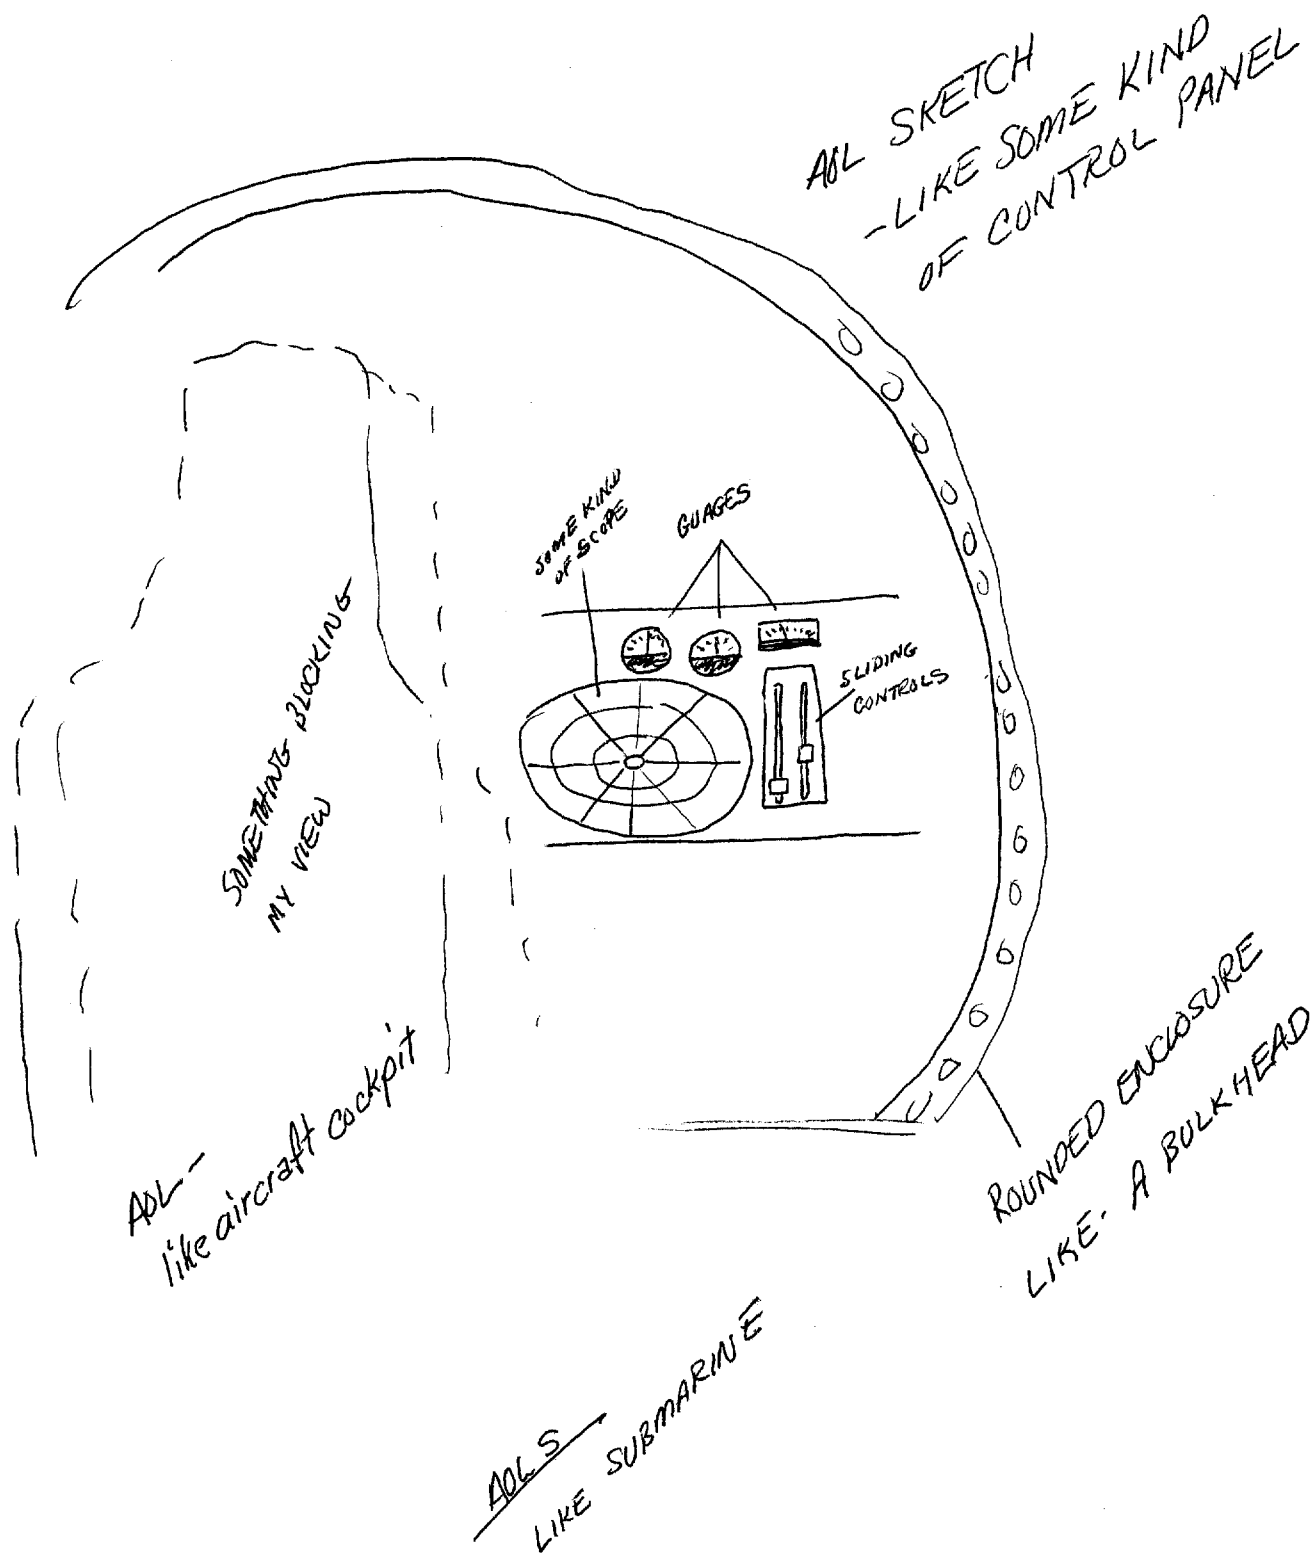 AOL SKETCH
-LIKE SOME KIND
OF CONTROL PANEL
SOME KIND
OF SCOPE
GUAGES
SLIDING
CONTROLS
SOMETHING BLOCKING
MY VIEW
AOL-
like aircraft cockpit
ROUNDED ENCLOSURE
LIKE A BULKHEAD
AOL S
LIKE SUBMARINE